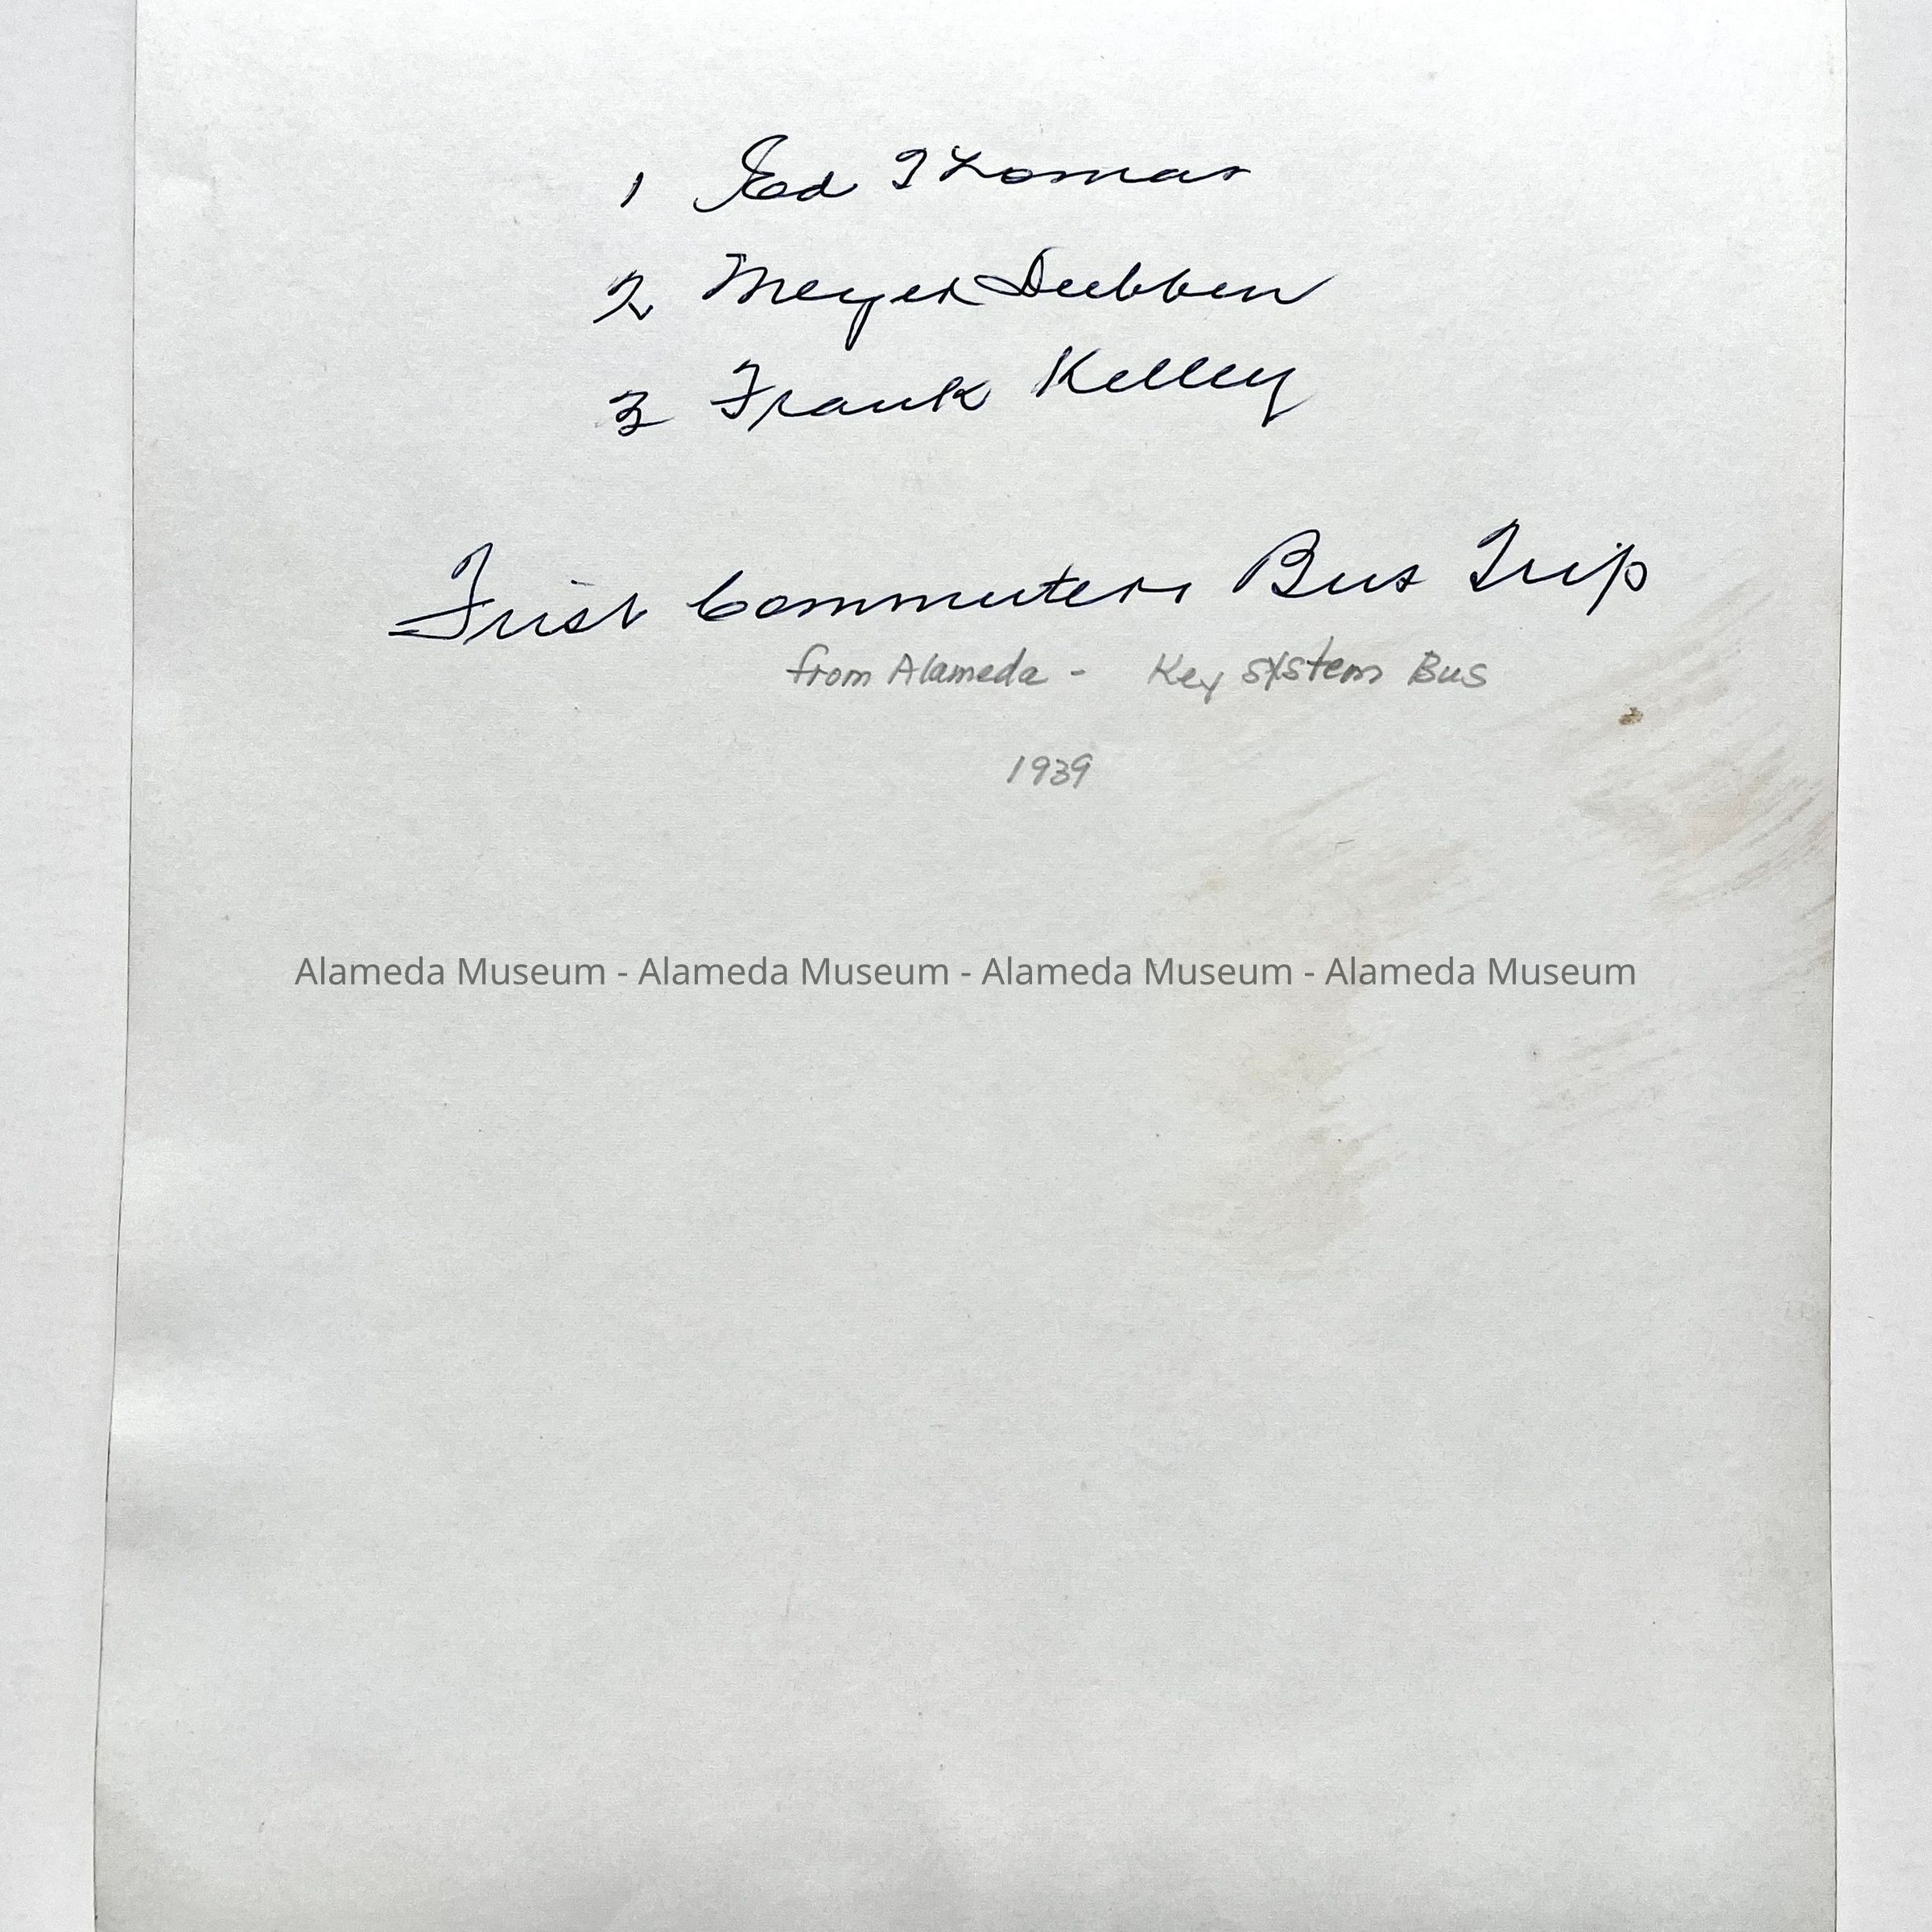 1 Ed Thomas
2 Meyer Dubben
3 Frank Kelley
First Commuters Bus Trip
from Alameda - Key System Bus
1939
Alameda Museum - Alameda Museum - Alameda Museum - Alameda Museum